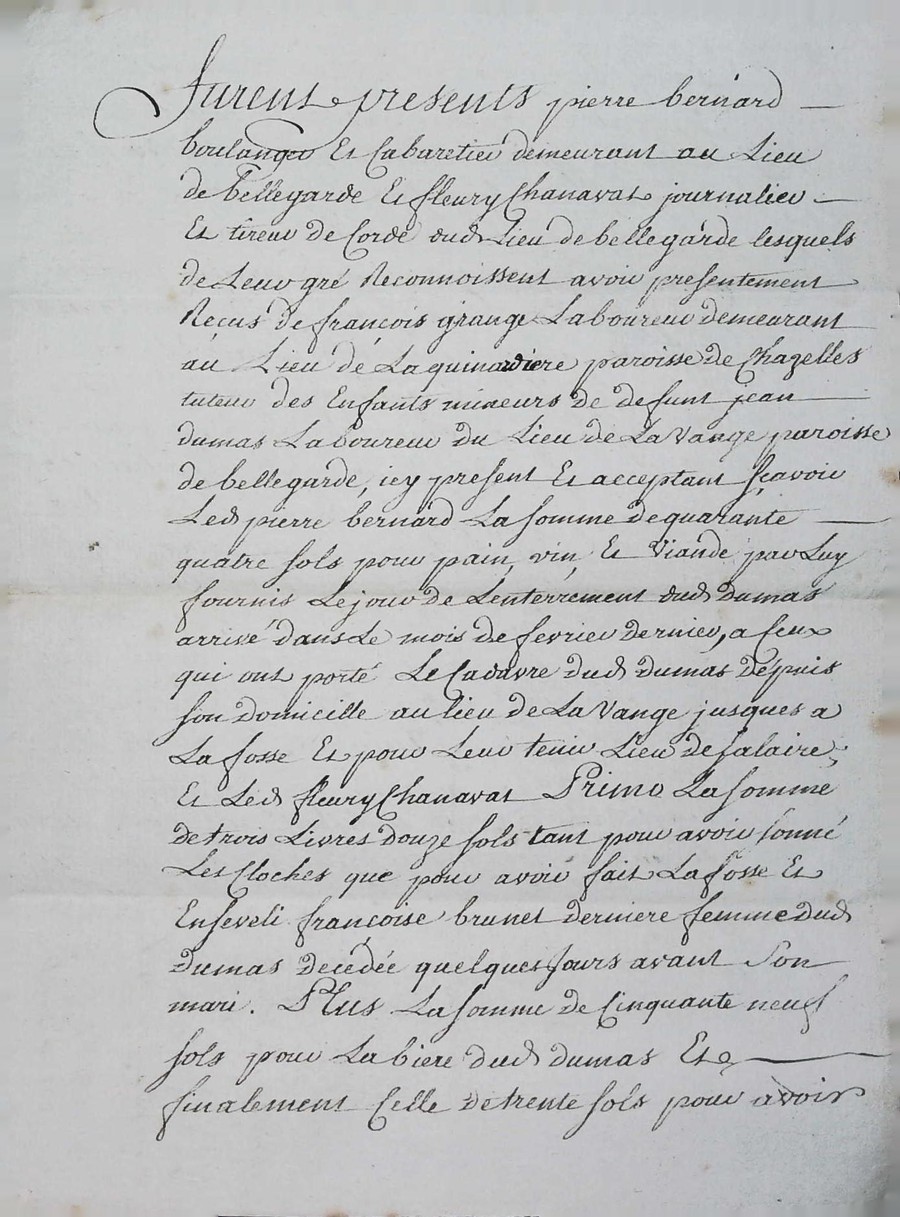 furent presents pierre bernard
boulanger Et Cabaretier demeurant au Lieu
de bellegarde Et fleury Chanavat journalier
Et tireur de Corde dud Lieu de bellegarde lesquels
de Leur gré Reconnoissent avoir presentement
Reçus de françois grange Laboureur demeurant
au Lieu de Laquinardiere paroisse de Chazelles
tuteur des Enfants mineurs de defunt jean
dumas Laboureur du Lieu de La Vange paroisse
de bellegarde, icy present Et acceptant sçavoir
Led pierre bernard La somme de quarante
quatre sols pour pain, vin, Et Viande par Luy
fournis Le jour de Lenterrement dud dumas
arrivé dans Le mois de fevrier dernier, a Ceux
qui ont porté Le Cadavre dud dumas depuis
son domicille au lieu de La Vange jusques a
La fosse Et pour Leur tenir Lieu de salaire;
Et Led fleury Chanavat Primo La somme
de trois Livres douze sols tant pour avoir sonné
Les Cloches que pour avoir fait La fosse Et
Enseveli françoise brunet derniere femme dud
dumas decedée quelques jours avant Son
mari. Plus La somme de Cinquante neuf
sols pour La biere dud dumas Et
finalement Celle de trente sols pour avoir